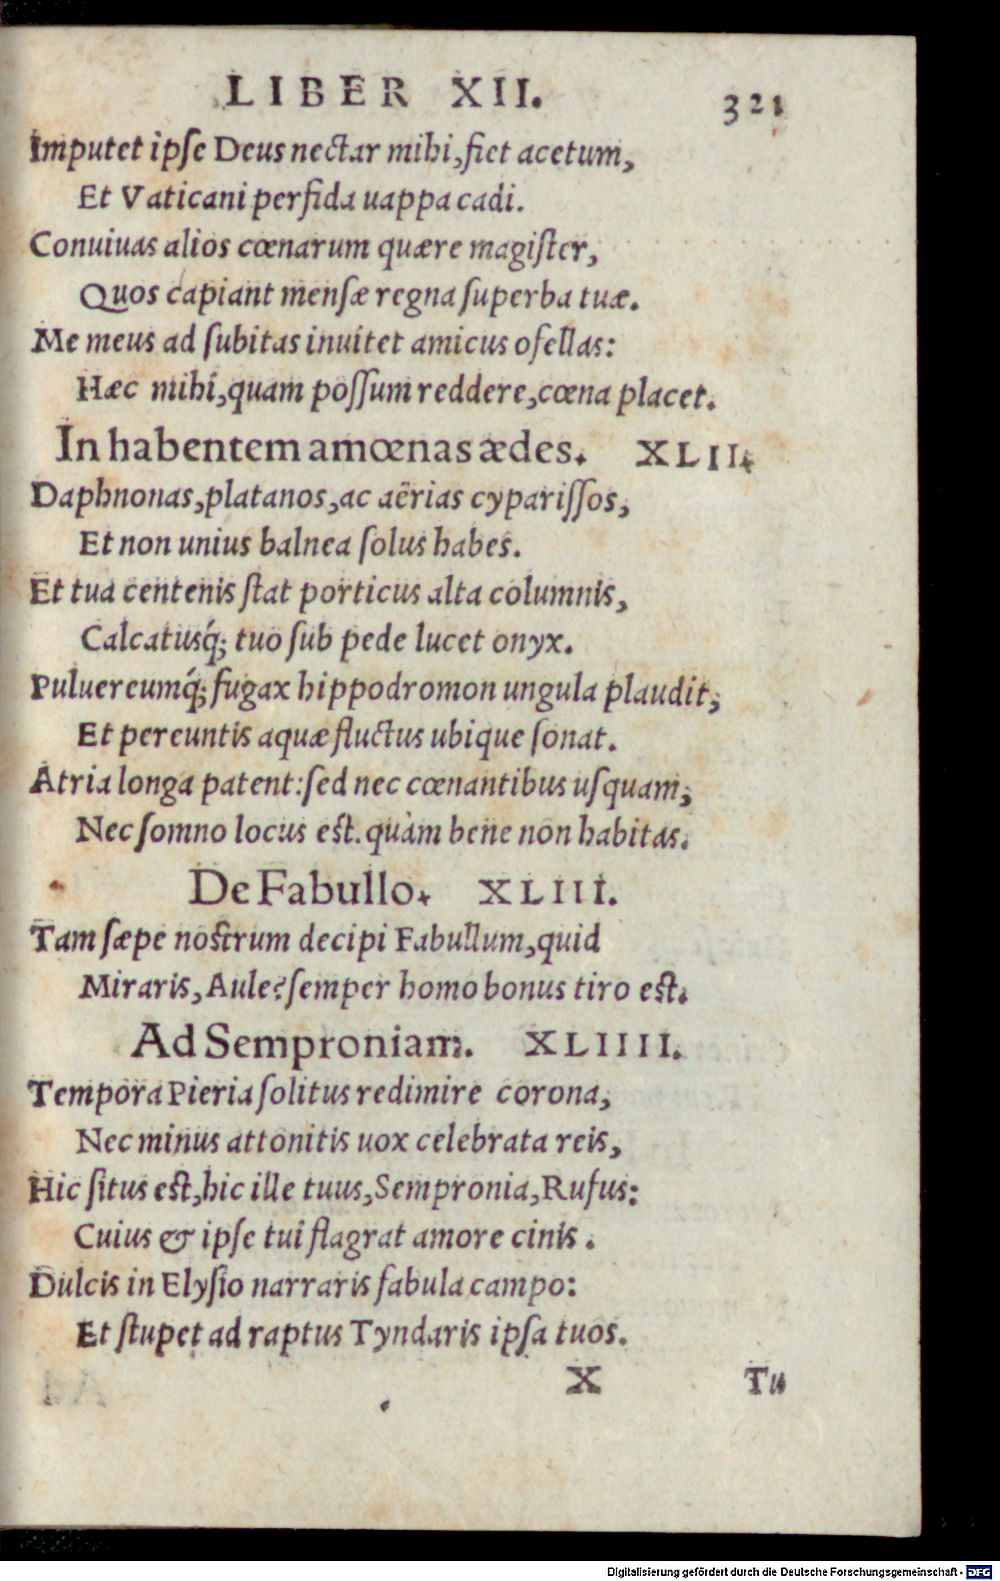 LIBER XII. 321
Imputet ipſe Deus nectar mihi, fiet acetum,
Et Vaticani perfida uappa cadi.
Conuiuas alios cœnarum quære magiſter,
Quos capiant menſæ regna ſuperba tuæ.
Me meus ad ſubitas inuitet amicus ofellas:
Hæc mihi, quam poſſum reddere, cœna placet.
In habentem amœnas ædes. XLII.
Daphnonas, platanos, ac aërias cypariſſos,
Et non unius balnea ſolus habes.
Et tua centenis ſtat porticus alta columnis,
Calcatusq́; tuo ſub pede lucet onyx.
Puluereumq́; fugax hippodromon ungula plaudit,
Et pereuntis aquæ fluctus ubique ſonat.
Atria longa patent: ſed nec cœnantibus uſquam,
Nec ſomno locus eſt. quàm bene non habitas.
De Fabullo. XLIII.
Tam ſæpe noſtrum decipi Fabullum, quid
Miraris, Aule? ſemper homo bonus tiro eſt.
Ad Semproniam. XLIIII.
Tempora Pieria ſolitus redimire corona,
Nec minus attonitis uox celebrata reis,
Hic ſitus eſt, hic ille tuus, Sempronia, Rufus:
Cuius & ipſe tui flagrat amore cinis.
Dulcis in Elyſio narraris fabula campo:
Et ſtupet ad raptus Tyndaris ipſa tuos.
X Tu
Digitalisierung gefördert durch die Deutsche Forschungsgemeinschaft - DFG